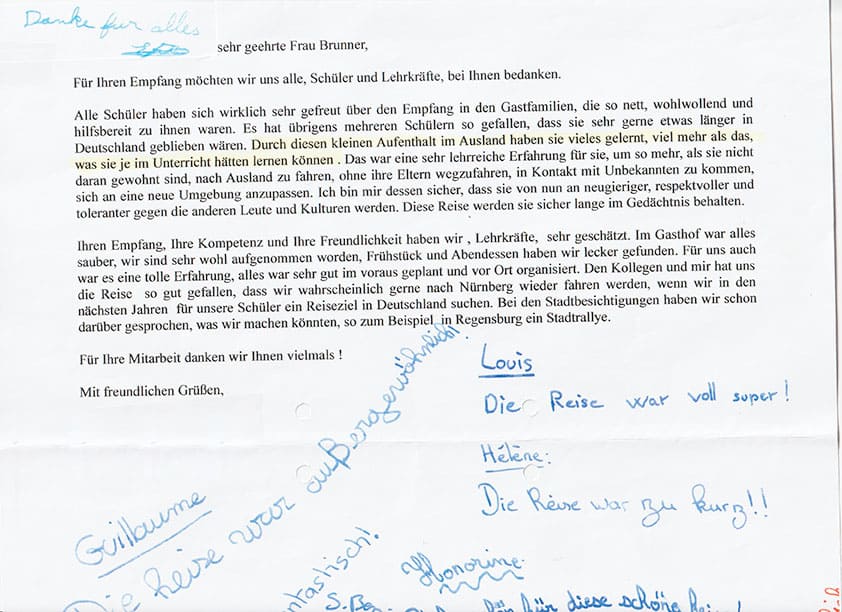 Danke für alles
sehr geehrte Frau Brunner,
Für Ihren Empfang möchten wir uns alle, Schüler und Lehrkräfte, bei Ihnen bedanken.
Alle Schüler haben sich wirklich sehr gefreut über den Empfang in den Gastfamilien, die so nett, wohlwollend und
hilfsbereit zu ihnen waren. Es hat übrigens mehreren Schülern so gefallen, dass sie sehr gerne etwas länger in
Deutschland geblieben wären. Durch diesen kleinen Aufenthalt im Ausland haben sie vieles gelernt, viel mehr als das,
was sie je im Unterricht hätten lernen können . Das war eine sehr lehrreiche Erfahrung für sie, um so mehr, als sie nicht
daran gewohnt sind, nach Ausland zu fahren, ohne ihre Eltern wegzufahren, in Kontakt mit Unbekannten zu kommen,
sich an eine neue Umgebung anzupassen. Ich bin mir dessen sicher, dass sie von nun an neugieriger, respektvoller und
toleranter gegen die anderen Leute und Kulturen werden. Diese Reise werden sie sicher lange im Gedächtnis behalten.
Ihren Empfang, Ihre Kompetenz und Ihre Freundlichkeit haben wir , Lehrkräfte, sehr geschätzt. Im Gasthof war alles
sauber, wir sind sehr wohl aufgenommen worden, Frühstück und Abendessen haben wir lecker gefunden. Für uns auch
war es eine tolle Erfahrung, alles war sehr gut im voraus geplant und vor Ort organisiert. Den Kollegen und mir hat uns
die Reise so gut gefallen, dass wir wahrscheinlich gerne nach Nürnberg wieder fahren werden, wenn wir in den
nächsten Jahren für unsere Schüler ein Reiseziel in Deutschland suchen. Bei den Stadtbesichtigungen haben wir schon
darüber gesprochen, was wir machen könnten, so zum Beispiel in Regensburg ein Stadtrallye.
Für Ihre Mitarbeit danken wir Ihnen vielmals !
Mit freundlichen Grüßen,
Louis
Die Reise war voll super!
Hélène:
Die Reise war zu kurz!!
Guillaume
Die Reise war außergewöhnlich!
Honorine
für diese schöne